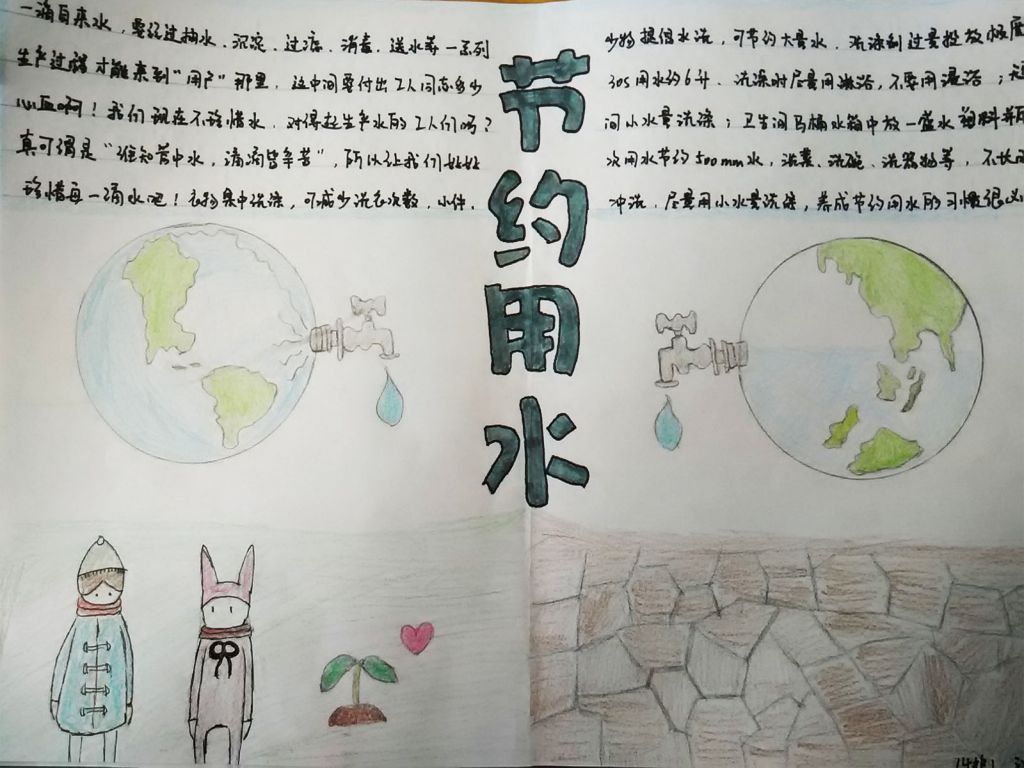 一滴自来水，要经过抽水、沉淀、过滤、消毒、送水等一系列
生产过程才能来到“用户”那里，这中间要付出工人同志多少
心血啊！我们现在不珍惜水，对得起生产水的工人们吗？
真可谓是“谁知管中水，滴滴皆辛苦”，所以让我们好好
珍惜每一滴水吧！衣物集中洗涤，可减少洗衣次数，小件、
节约用水
少物提倡水洗，可节约大量水，洗涤剂过量投放
30s用水约6升、洗澡时尽量用淋浴，不要用盆浴；短
间小水量洗涤；卫生间马桶水箱中放一盛水塑料瓶
次用水节约500mm水，洗菜、洗碗、洗器物等，不长
冲洗，尽量用小水量洗涤，养成节约用水的习惯很必